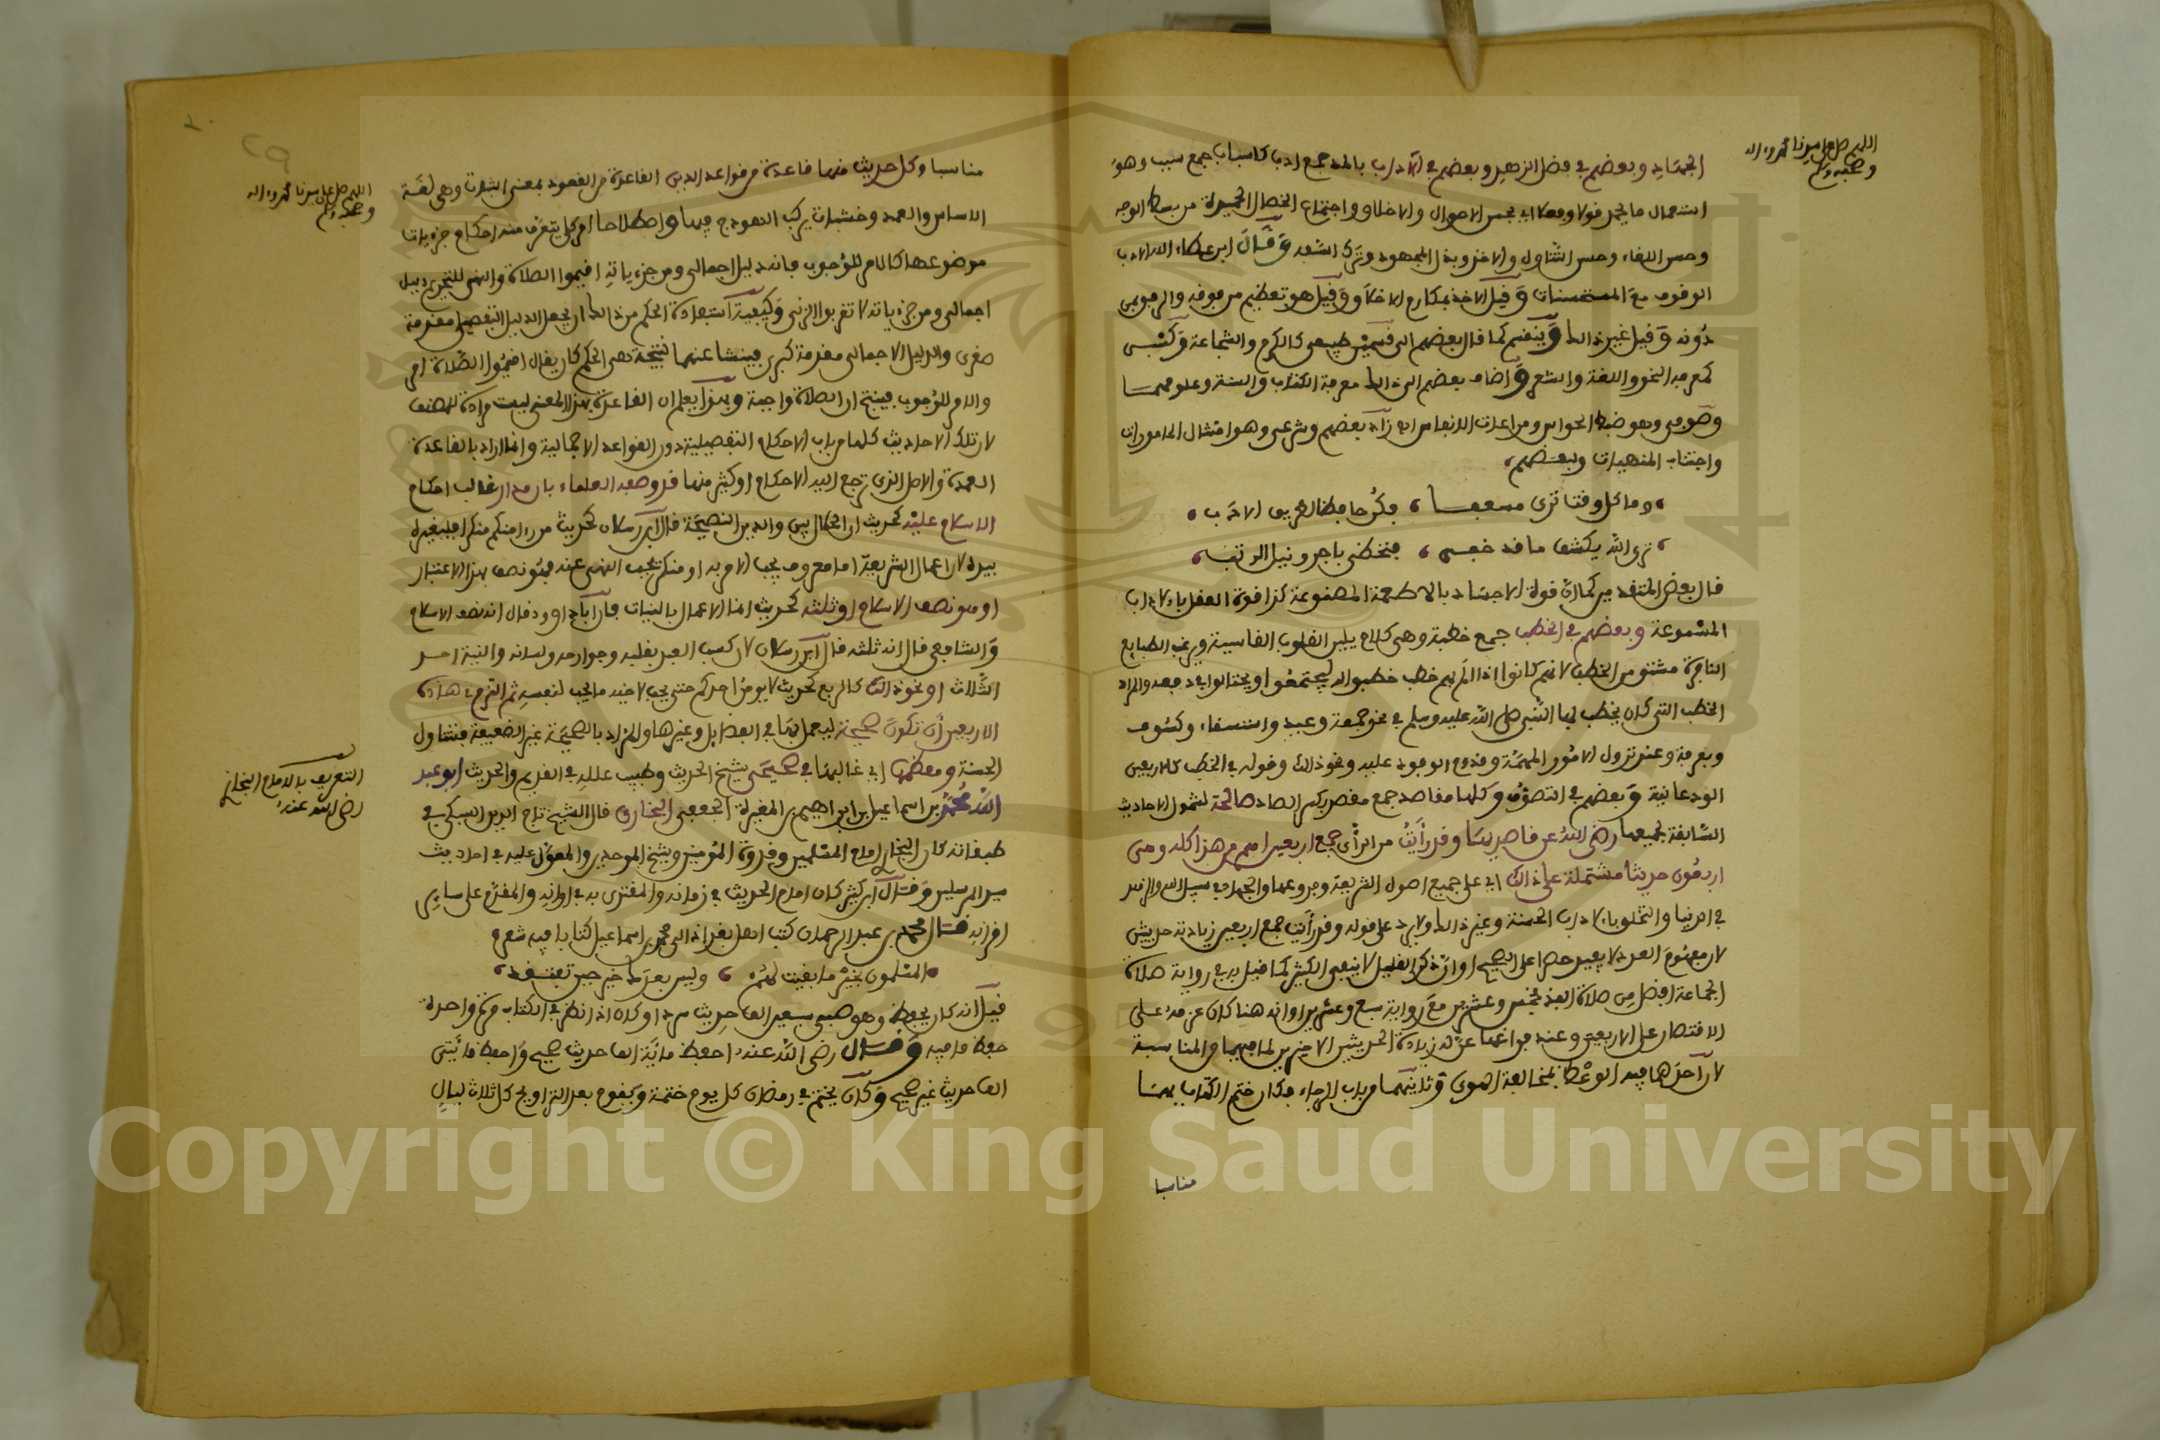 اللهم صل على سيدنا محمد وءاله
وصحبه وسلم
الجهاد وبعضهم في فضل الزهد وبعضهم في الآداب بالمد جمع ادب كاسباب جمع سبب وهو
استعمال ما يحمد قولا وفعلا اي بحسن الاحوال والاخلاق واجتماع الخصال الحميدة من بسط الوجه
وحسن اللقاء وحسن التناول والاخذ وبذل المجهود وترك الشعه وقال ابن عطاء الله الادب
الوقوف مع المستحسنات وقيل الاخذ بمكارم الاخلاق وقيل هو تعظيم من فوقه والرفق بمن
دونه وقيل غير ذالك وينقسم كما قال بعضهم الى قسمين طبيعي كالكرم والشجاعة وكسبي
كمعرفة النحو واللغة والشعر وأضاف بعضهم الى ذالك معرفة الكتاب والسنة وعلومهما
وصوفي وهو ضبط الحواس ومراعات الانفاس اه زاد بعضهم وشرعي وهو امتثال المامورات
واجتناب المنهيات ولبعضهم
وما كل وقت ترى مسعفا فكن حافظا لطريق الادب
ترى الله يكشف ما قد خفى فتحظى باجر ونيل الرتب
قال بعض المتقدمين كما ان قوة الاجساد بالاطعمة المصنوعة كذا قوة العقل بالاداب
المسموعة وبعضهم في الخطب جمع خطبة وهي كلام يلين القلوب القاسية ويرغب الطبايع
النافرة مشتق من الخطب لانهم كانوا اذا الم بهم خطب خطبوا له ليجتمعوا ويحتالوا في دفعه والمراد
الخطب التي كان يخطب بها النبي صلى الله عليه وسلم في نحو جمعة وعيد واستسقاء وكسوف
وبعرفة وعند نزول الامور المهمة وقدوم الوفود عليه ونحو ذالك وقوله في الخطب كالاربعين
الودعانية وبعضهم في التصوف وكلها مقاصد جمع مقصد بكسر الصاد صالحة لشمول الاحاديث
السابقة لجميعها رضي الله عن قاصديها وقد رأيت من الرأي جمع اربعين اهم من هذا كله وهي
اربعون حديثا مشتملة على ذالك اي على جميع اصول الشريعة وفروعها والجهاد في سبيل الله والزهد
في الدنيا والتخلق بالاداب الحسنة وغير ذالك ولا يرد على قوله وقد رأيت جمع اربعين زيادته حديثين
لان مفهوم العدد لا يفيد حصرا على الصحيح او ان ذكر القليل لا ينفي الكثير كما قيل به في رواية صلاة
الجماعة افضل من صلاة الفذ بخمس وعشرين مع رواية سبع وعشرين او انه هنا كان عزمه على
الاقتصار على الاربعين وعند فراغها عن له زيادة الحديثين الاخيرين لما فيهما من المناسبة
لان احدهما فيه الوعظ بمخالفة الهوى وثانيهما من باب الرجاء فكان ختم الكتاب بهما
مناسبا
اللهم صل على سيدنا محمد وءاله
وصحبه وسلم
مناسبا وكل حديث منها قاعدة من قواعد الدين القاعدة من القعود بمعنى الثبوت وهي لغة
الاساس والعمد وخشبات يركب الهودج فيها واصطلاحا امر كلي يتعرف منه احكام جزييات
موضوعها كالامر للوجوب فانه دليل اجمالي ومن جزءياته اقيموا الصلاة والنهي للتحريم دليل
اجمالي ومن جزءياته لا تقربوا الزنى وكيفية استفادة الحكم من ذالك ان يجعل الدليل التفصيلي مقدمة
صغرى والدليل الاجمالي مقدمة كبرى فينشا عنهما نتيجة هي الحكم كان يقال اقيموا الصلاة امر
والامر للوجوب فينتج ان الصلاة واجبة وبهذا يعلم ان القاعدة بهذا المعنى ليست مرادة للمصنف
لان تلك الاحاديث كلها من باب الاحكام التفصيلية دون القواعد الاجمالية وانما اراد بالقاعدة
العمدة والاصل الذي ترجع اليه الاحكام او كثير منها قد وصفه العلماء بان مدار غالب احكام
الاسلام عليه كحديث ان الحلال بين والدين النصيحة قال ابن رسلان كحديث من رءا منكم منكرا فليغيره
بيده لان اعمال الشريعة اما معروف يجب الامر به او منكر يجب النهي عنه فهو نصف بهذا الاعتبار
او هو نصف الاسلام او ثلثه كحديث انما الاعمال بالنيات فان ابا داوود قال انه نصف الاسلام
والشافعي قال انه ثلثه قال ابن رسلان لان كسب العبد بقلبه وجوارحه ولسانه والنية احد
الثلاث او نحو ذالك كالربع كحديث لا يومن احدكم حتى يحب لاخيه ما يحب لنفسه ثم التزم في هذه
الاربعين أن تكون صحيحة ليعمل بها في الفضايل وغيرها والمراد بالصحيحة غير الضعيفة فتناول
الحسنة ومعظمها اي غالبها في صحيحي شيخ الحديث وطبيب علله في القديم والحديث ابو عبد
الله محمد بن اسماعيل بن ابراهيم بن المغيرة الجعفي البخاري قال الشيخ تاج الدين السبكي في
طبقاته كان البخاري امام المسلمين وقدوة المؤمنين وشيخ الموحدين والمعول عليه في احاديث
سيد المرسلين وقال ابن كثير كان امام الحديث في زمانه والمقتدى به في اوانه والمقدم على ساير
اقرانه قال محمد بن عبد الرحمان كتب اهل بغداد الى محمد بن اسماعيل كتابا فيه شعر
المسلمون بخير ما بقيت لهم وليس بعدك خير حين تفتقد
قيل انه كان يحفظ وهو صبي سبعين الف حديث سردا وكان اذا نظر في الكتاب مرة واحدة
حفظ ما فيه وقال رضي الله عنه احفظ ماية الف حديث صحيح واحفظ مايتي
الف حديث غير صحيح وكان يختم في رمضان كل يوم ختمة ويقوم بعد التراويح كل ثلاث ليال
التعريف بالامام البخاري
رضي الله عنه
Copyright © King Saud University